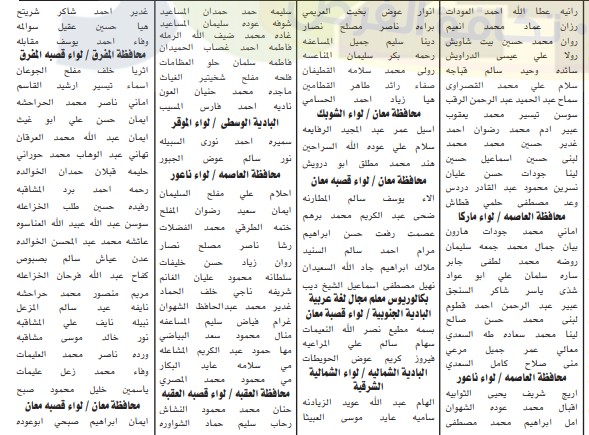 رانيه عطا الله احمد العودات
رزان عماد محمد انعيم
روان محمد حسين بيت شاويش
رولا علي عيسى الدراويش
سائده وحيد سالم قباجه
سلام علي محمد القصراوي
سماح عبد الحميد عبد الرحمن الرقب
سوسن تيسير محمد يعقوب
عبير ادم محمد رضوان احمد
غدير حسين محمد محمد
لبنى حسين اسماعيل حسين
لينا جودات حسن عليان
نسرين محمود عبد القادر دردس
وعد مصطفى حلمي قطاش
محافظة العاصمه / لواء ماركا
اماني محمد جودات هارون
بيان جمال محمد جمعه سليمان
روضه محمد لطفي جابر
ساره سلمان علي ابو عواد
شذى ياسر شاكر السنجق
عبير عبد الرحمن احمد قطوم
لبنى محمد حسن صالح
لينا محمد سعاده طه السعدي
معالي عمر جميل مرعي
منى صلاح كامل السعدي
محافظة العاصمه / لواء ناعور
اريج شريف يحيى الثوابيه
اقبال محمد عوده الشهوان
امل ابراهيم محمد مصطفى
انوار عوض بخيت العريمي
براءه ناصر مصلح نصار
دينا سليم جميل المساعفه
رحمه بكر سليمان المناعسه
رولى محمد سلامه القطيفان
صفاء رائد طاهر القطامين
هيا زياد احمد الحسامي
محافظة معان / لواء الشوبك
اسيل عمر عبد المجيد الرفايعه
سلام علي عوده الله السراحين
هند محمد مطلق ابو درويش
محافظة معان / لواء قصبه معان
الاء يوسف سالم المطارنه
ضحى عبد الكريم محمد برهم
عصمت رفعت حسن ابراهيم
مرام احمد سالم السنيد
ملاك ابراهيم جاد الله السعيدان
نهيل مصطفى اسماعيل الشيخ ديب
بكالوريوس معلم مجال لغة عربية
البادية الجنوبية / لواء قصبة معان
بسمه مطيع نصر الله النعيمات
سهام سالم علي المراعيه
فيروز كريم عوض الحويطات
البادية الشماليه / لواء الشمالية
الشرقية
الهام عبد الله عويد الزيادنه
ساميه عايد موسى العبيثا
سليمه حمد حمدان المساعيد
شوفه عوده سليمان المساعيد
غاده محمد ضيف الله الرمله
فاطمه احمد غصاب الحميدان
فاطمه سلمان حلو العظامات
فلحه مفلح شخيتير الغياث
ماجده محمد حنيان العون
ناديه احمد فارس المسيب
البادية الوسطى / لواء الموقر
سميره احمد نوري السبيله
نور سالم عوض الجبور
محافظة العاصمه / لواء ناعور
احلام علي مفلح السليمان
ايمان سعيد رضوان المفلح
ختمه الطرقي محمد الفضلات
رشا ناصر مصلح نصار
روان زياد حسن خليفات
سلطانه محمود عليان الغانم
شريفه ناجي خلف الحماد
غدير محمد عبدالحافظ الشهوان
غرام فياض سليم المساعفه
منال محمود سعد البياضي
مها حمود عبد الكريم المشاعله
مي سلامه عايد البكار
مي محمود محمد المصري
محافظة العقبه / لواء قصبه العقبه
حنان محمد محمود النشاش
رحاب سليم حماد الشواوره
غدير احمد شاكر شريتح
هيا حسين عقيل سوالمه
وفاء احمد يوسف مقابله
محافظة المفرق / لواء قصبه المفرق
اثريا خلف مفلح الجوعان
اسماء تيسير ارشيد القاسم
اماني ناصر محمد الحراحشه
ايمان حسن علي ابو غيث
ايمان عبد الله محمد العرقان
تهاني عبد الوهاب محمد حوراني
حليمه قبلان حمدان الخوالده
رحمه احمد برد المشاقبه
رفيده حسين طلب الخزاعله
سوسن عبد الله عبيد الله العناسوه
عائشه محمد عبد المحسن الخوالده
عدن عياش سالم بصبوص
كفاح عبد الله فرحان الخزاعله
مريم منصور محمد حراحشه
نايفه عيد سالم المزعل
نبيله نايف علي المشاقبه
نور خالد موسى مشاقبه
ورده ناصر محمد العليمات
وفاء محمد زعل عليمات
ياسمين خليل محمود صبح
محافظة معان / لواء قصبه معان
ايمان ابراهيم صبحي ابوعوده